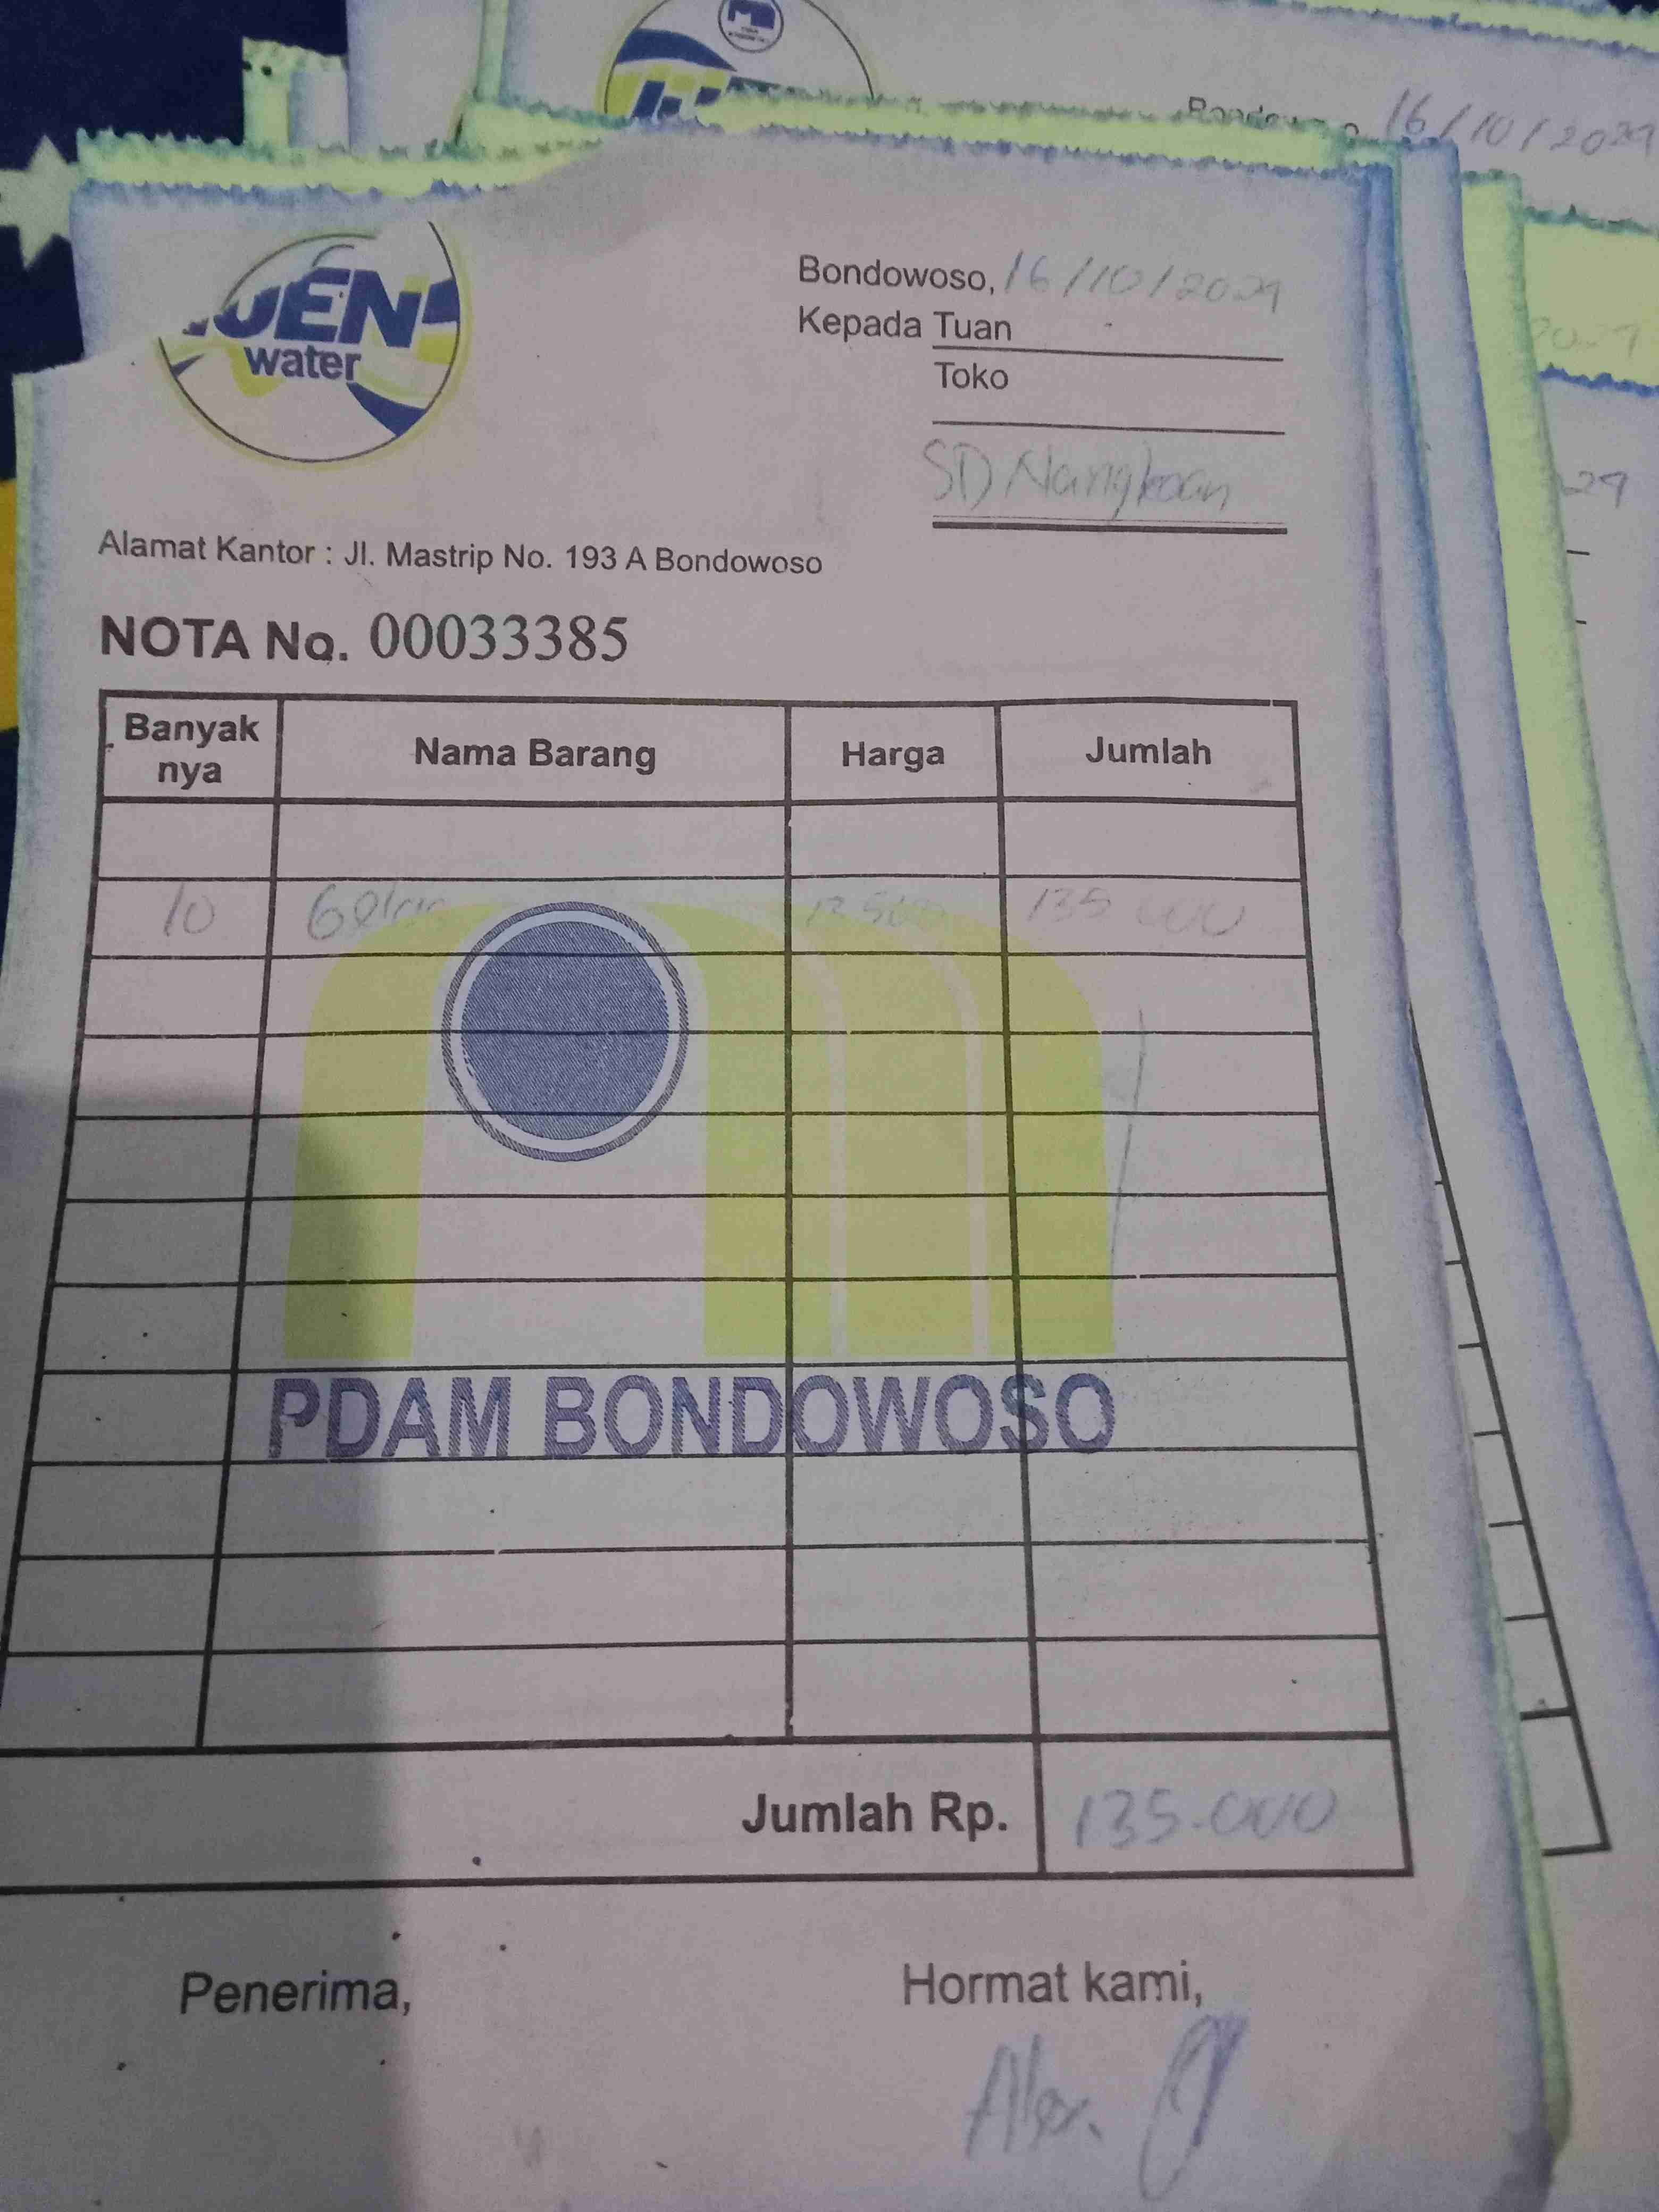 Bondowo
16/10/2024
JEN
water
Bondowoso, 16/10/2024
Kepada Tuan
Toko
SD Nangkaan
Alamat Kantor : Jl. Mastrip No. 193 A Bondowoso
NOTA No. 00033385
Banyak nya Nama Barang Harga Jumlah
10 Gelas 13.500 135.000
PDAM BONDOWOSO
Jumlah Rp. 135.000
Penerima,
Hormat kami,
Alex.